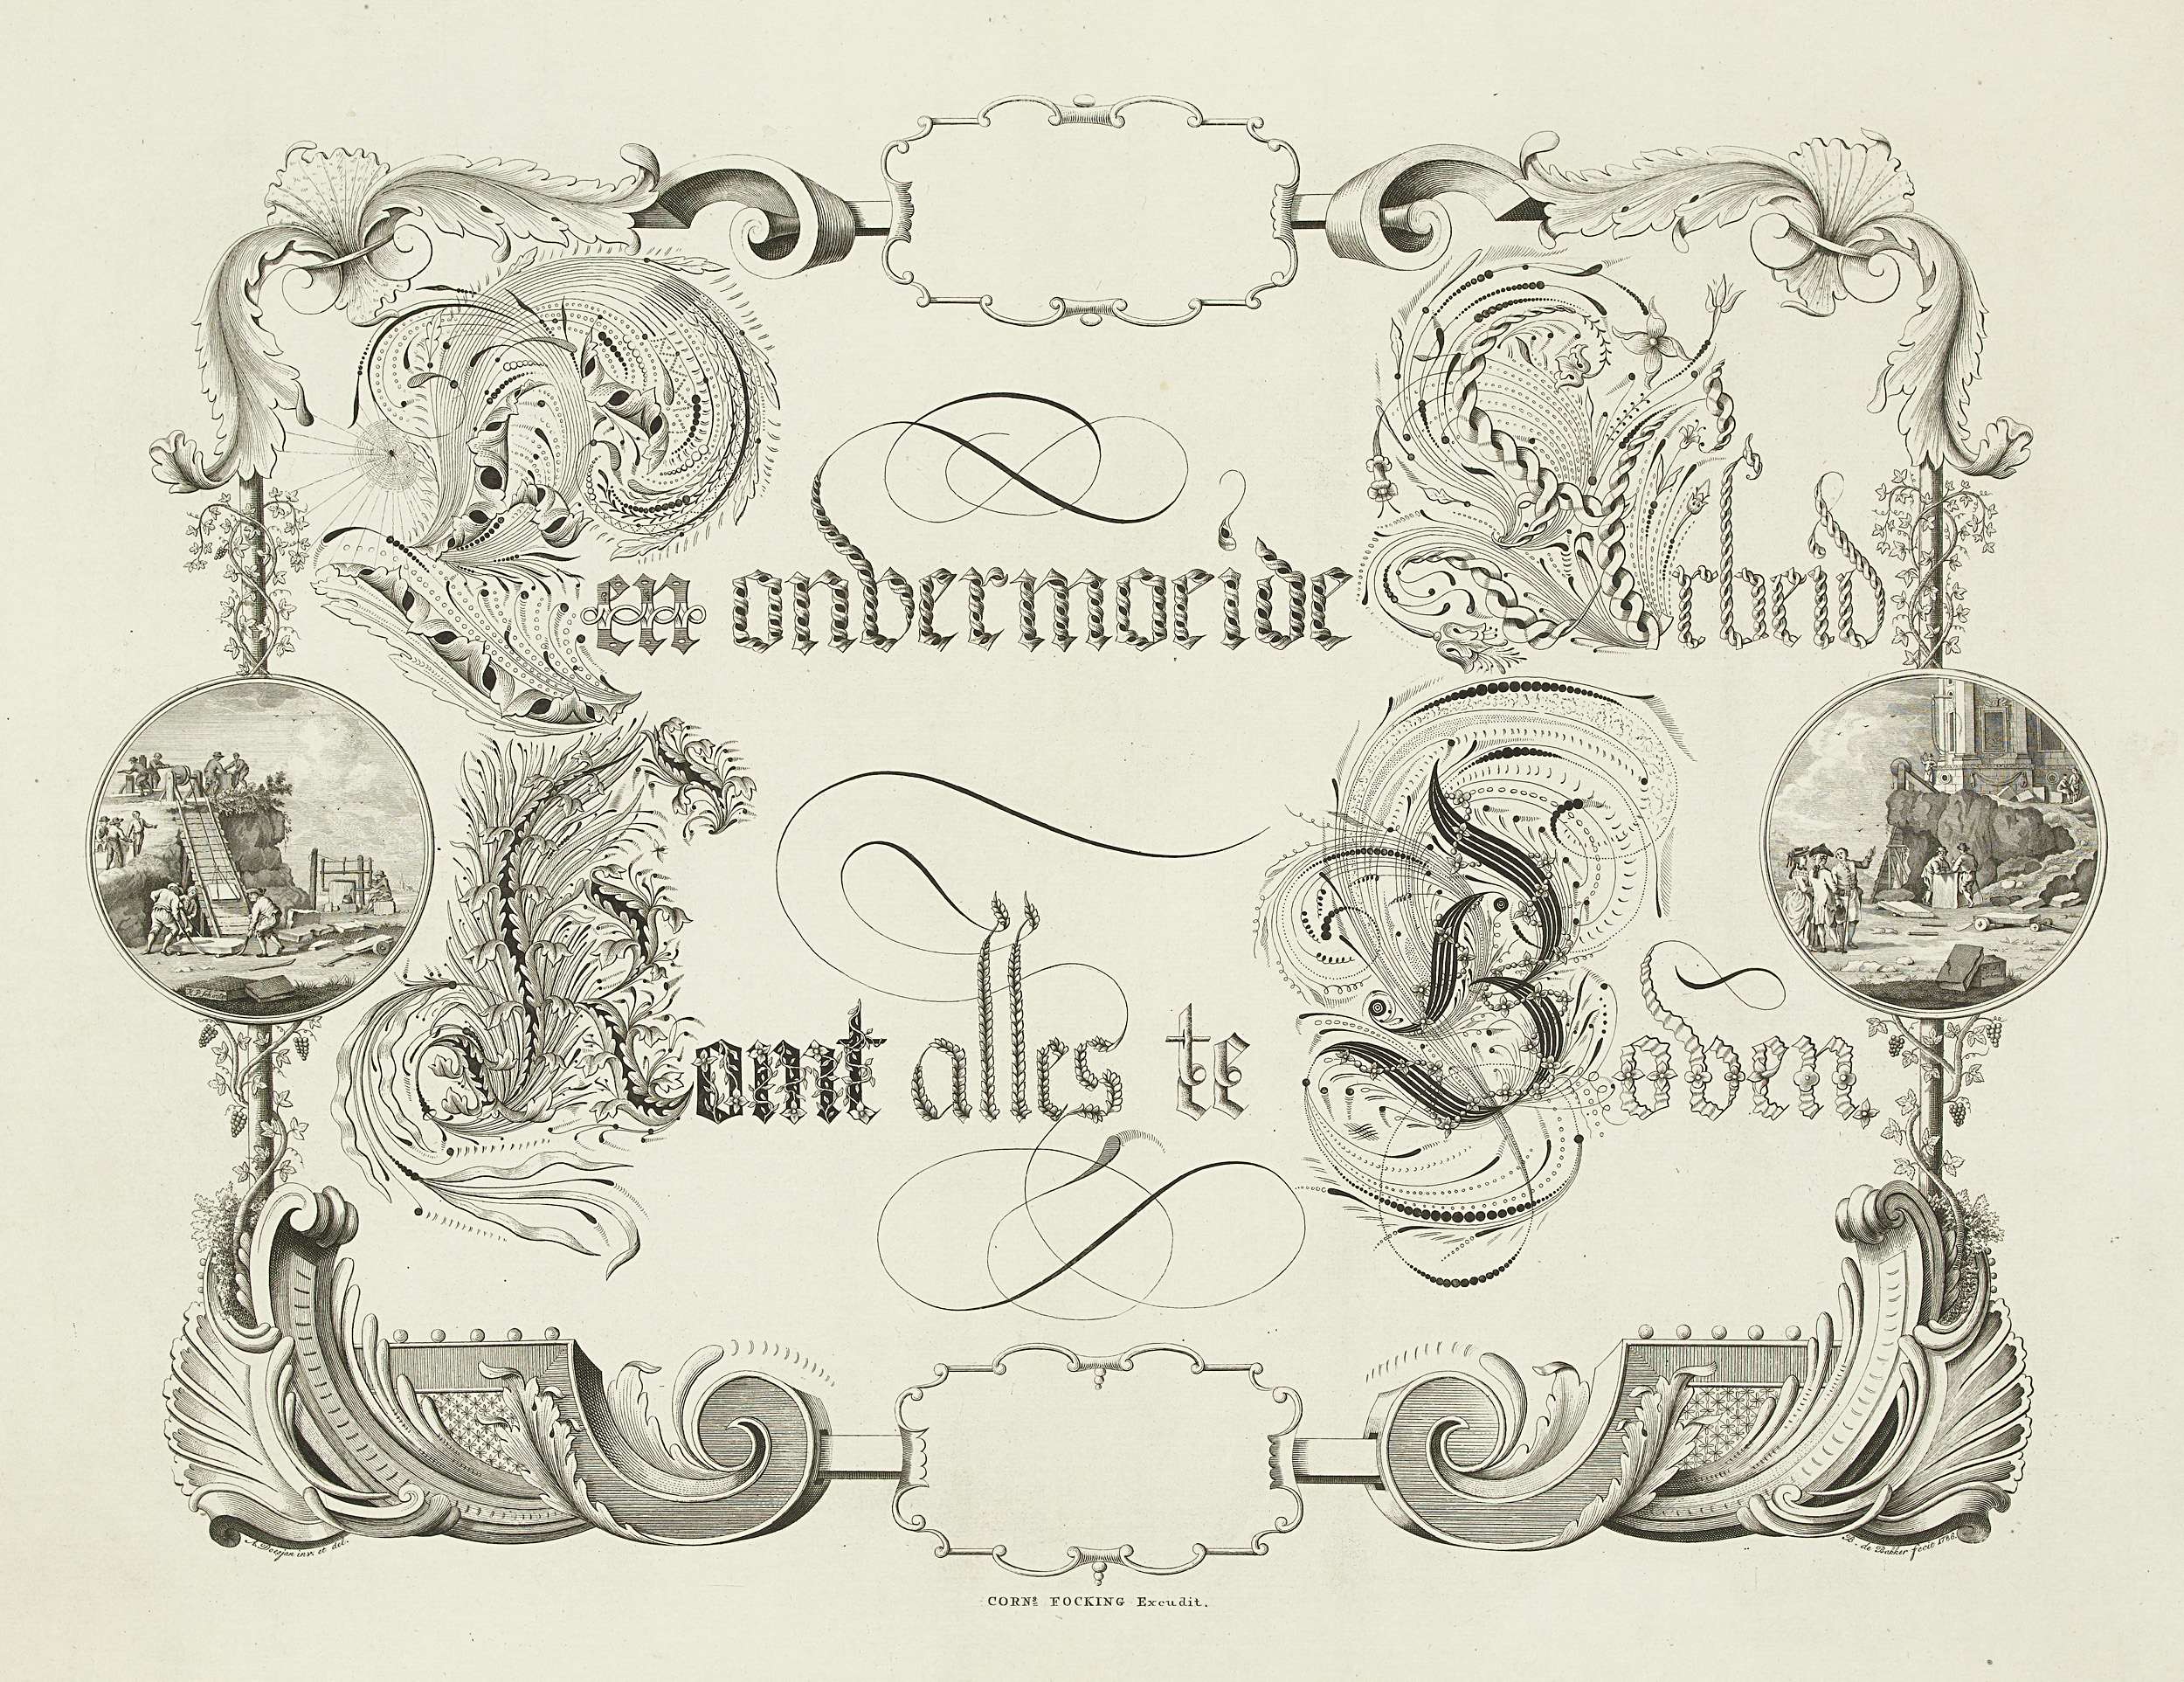 Een onvermoeide Arbeid
Komt alles te Boven.
A. Doesjan inv. et del.
B. de Bakker fecit 1786.
CORNs. FOCKING Excudit.